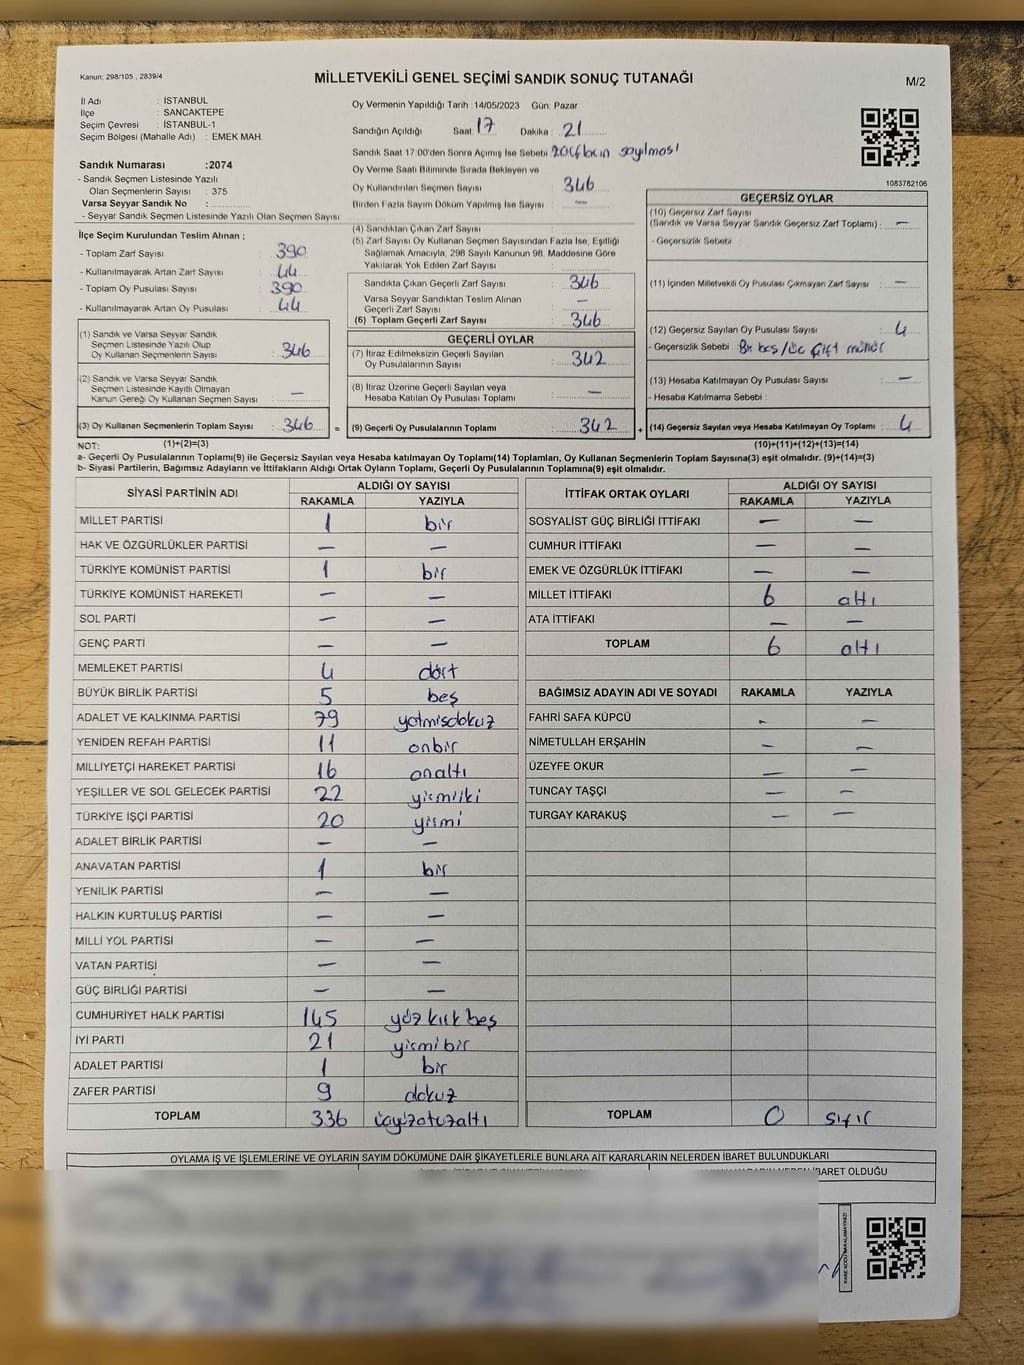 Kanun: 298/105 , 2839/4
MİLLETVEKİLİ GENEL SEÇİMİ SANDIK SONUÇ TUTANAĞI
M/2
İl Adı : İSTANBUL
İlçe : SANCAKTEPE
Seçim Çevresi : İSTANBUL-1
Seçim Bölgesi (Mahalle Adı) : EMEK MAH.
Sandık Numarası :2074
- Sandık Seçmen Listesinde Yazılı
Olan Seçmenlerin Sayısı : 375
Varsa Seyyar Sandık No :
- Seyyar Sandık Seçmen Listesinde Yazılı Olan Seçmen Sayısı:
Oy Vermenin Yapıldığı Tarih :14/05/2023 Gün: Pazar
Sandığın Açıldığı Saat: 17 Dakika : 21
Sandık Saat 17:00'den Sonra Açılmış İse Sebebi : sayılması
Oy Verme Saati Bitiminde Sırada Bekleyen ve
Oy Kullandırılan Seçmen Sayısı : 346
Birden Fazla Sayım Döküm Yapılmış İse Sayısı :
1083782106
İlçe Seçim Kurulundan Teslim Alınan ;
- Toplam Zarf Sayısı : 390
- Kullanılmayarak Artan Zarf Sayısı : 44
- Toplam Oy Pusulası Sayısı : 390
- Kullanılmayarak Artan Oy Pusulası : 44
(1) Sandık ve Varsa Seyyar Sandık
Seçmen Listesinde Yazılı Olup
Oy Kullanan Seçmenlerin Sayısı : 346
(2) Sandık ve Varsa Seyyar Sandık
Seçmen Listesinde Kayıtlı Olmayan
Kanun Gereği Oy Kullanan Seçmen Sayısı : —
(3) Oy Kullanan Seçmenlerin Toplam Sayısı : 346 =
(4) Sandıktan Çıkan Zarf Sayısı :
(5) Zarf Sayısı Oy Kullanan Seçmen Sayısından Fazla İse, Eşitliği
Sağlamak Amacıyla, 298 Sayılı Kanunun 98. Maddesine Göre
Yakılarak Yok Edilen Zarf Sayısı :
Sandıkta Çıkan Geçerli Zarf Sayısı : 346
Varsa Seyyar Sandıktan Teslim Alınan
Geçerli Zarf Sayısı : —
(6) Toplam Geçerli Zarf Sayısı : 346
GEÇERLİ OYLAR
(7) İtiraz Edilmeksizin Geçerli Sayılan
Oy Pusulalarının Sayısı : 342
(8) İtiraz Üzerine Geçerli Sayılan veya
Hesaba Katılan Oy Pusulası Toplamı : —
(9) Geçerli Oy Pusulalarının Toplamı : 342 +
GEÇERSİZ OYLAR
(10) Geçersiz Zarf Sayısı
(Sandık ve Varsa Seyyar Sandık Geçersiz Zarf Toplamı) : —
- Geçersizlik Sebebi
(11) İçinden Milletvekili Oy Pusulası Çıkmayan Zarf Sayısı : —
(12) Geçersiz Sayılan Oy Pusulası Sayısı : 4
- Geçersizlik Sebebi : Bir boş/üç çift mühür
(13) Hesaba Katılmayan Oy Pusulası Sayısı : —
- Hesaba Katılmama Sebebi :
(14) Geçersiz Sayılan veya Hesaba Katılmayan Oy Toplamı : 4
NOT: (1)+(2)=(3) (10)+(11)+(12)+(13)=(14)
a- Geçerli Oy Pusulalarının Toplamı(9) ile Geçersiz Sayılan veya Hesaba katılmayan Oy Toplamı(14) Toplamları, Oy Kullanan Seçmenlerin Toplam Sayısına(3) eşit olmalıdır. (9)+(14)=(3)
b- Siyasi Partilerin, Bağımsız Adayların ve İttifakların Aldığı Ortak Oyların Toplamı, Geçerli Oy Pusulalarının Toplamına(9) eşit olmalıdır.
SİYASİ PARTİNİN ADI ALDIĞI OY SAYISI
RAKAMLA YAZIYLA
MİLLET PARTİSİ 1 bir
HAK VE ÖZGÜRLÜKLER PARTİSİ — —
TÜRKİYE KOMÜNİST PARTİSİ 1 bir
TÜRKİYE KOMÜNİST HAREKETİ — —
SOL PARTİ — —
GENÇ PARTİ — —
MEMLEKET PARTİSİ 4 dört
BÜYÜK BİRLİK PARTİSİ 5 beş
ADALET VE KALKINMA PARTİSİ 79 yetmişdokuz
YENİDEN REFAH PARTİSİ 11 onbir
MİLLİYETÇİ HAREKET PARTİSİ 16 onaltı
YEŞİLLER VE SOL GELECEK PARTİSİ 22 yirmiiki
TÜRKİYE İŞÇİ PARTİSİ 20 yirmi
ADALET BİRLİK PARTİSİ — —
ANAVATAN PARTİSİ 1 bir
YENİLİK PARTİSİ — —
HALKIN KURTULUŞ PARTİSİ — —
MİLLİ YOL PARTİSİ — —
VATAN PARTİSİ — —
GÜÇ BİRLİĞİ PARTİSİ — —
CUMHURİYET HALK PARTİSİ 145 yüz kırk beş
İYİ PARTİ 21 yirmi bir
ADALET PARTİSİ 1 bir
ZAFER PARTİSİ 9 dokuz
TOPLAM 336 üçyüzotuzaltı
İTTİFAK ORTAK OYLARI ALDIĞI OY SAYISI
RAKAMLA YAZIYLA
SOSYALİST GÜÇ BİRLİĞİ İTTİFAKI — —
CUMHUR İTTİFAKI — —
EMEK VE ÖZGÜRLÜK İTTİFAKI — —
MİLLET İTTİFAKI 6 altı
ATA İTTİFAKI — —
TOPLAM 6 altı
BAĞIMSIZ ADAYIN ADI VE SOYADI RAKAMLA YAZIYLA
FAHRİ SAFA KÜPCÜ - —
NİMETULLAH ERŞAHİN — —
ÜZEYFE OKUR — —
TUNCAY TAŞÇI — —
TURGAY KARAKUŞ — —
TOPLAM 0 sıfır
OYLAMA İŞ VE İŞLEMLERİNE VE OYLARIN SAYIM DÖKÜMÜNE DAİR ŞİKAYETLERLE BUNLARA AİT KARARLARIN NELERDEN İBARET BULUNDUKLARI
İBARET OLDUĞU